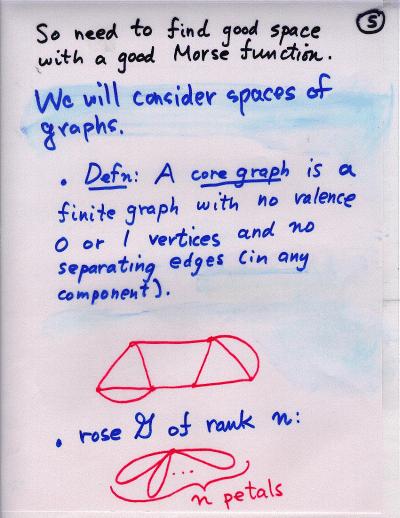 So need to find good space
with a good Morse function.
5
We will consider spaces of
graphs.
• Defn: A core graph is a
finite graph with no valence
0 or 1 vertices and no
separating edges (in any
component).
• rose G of rank n:
...
n petals